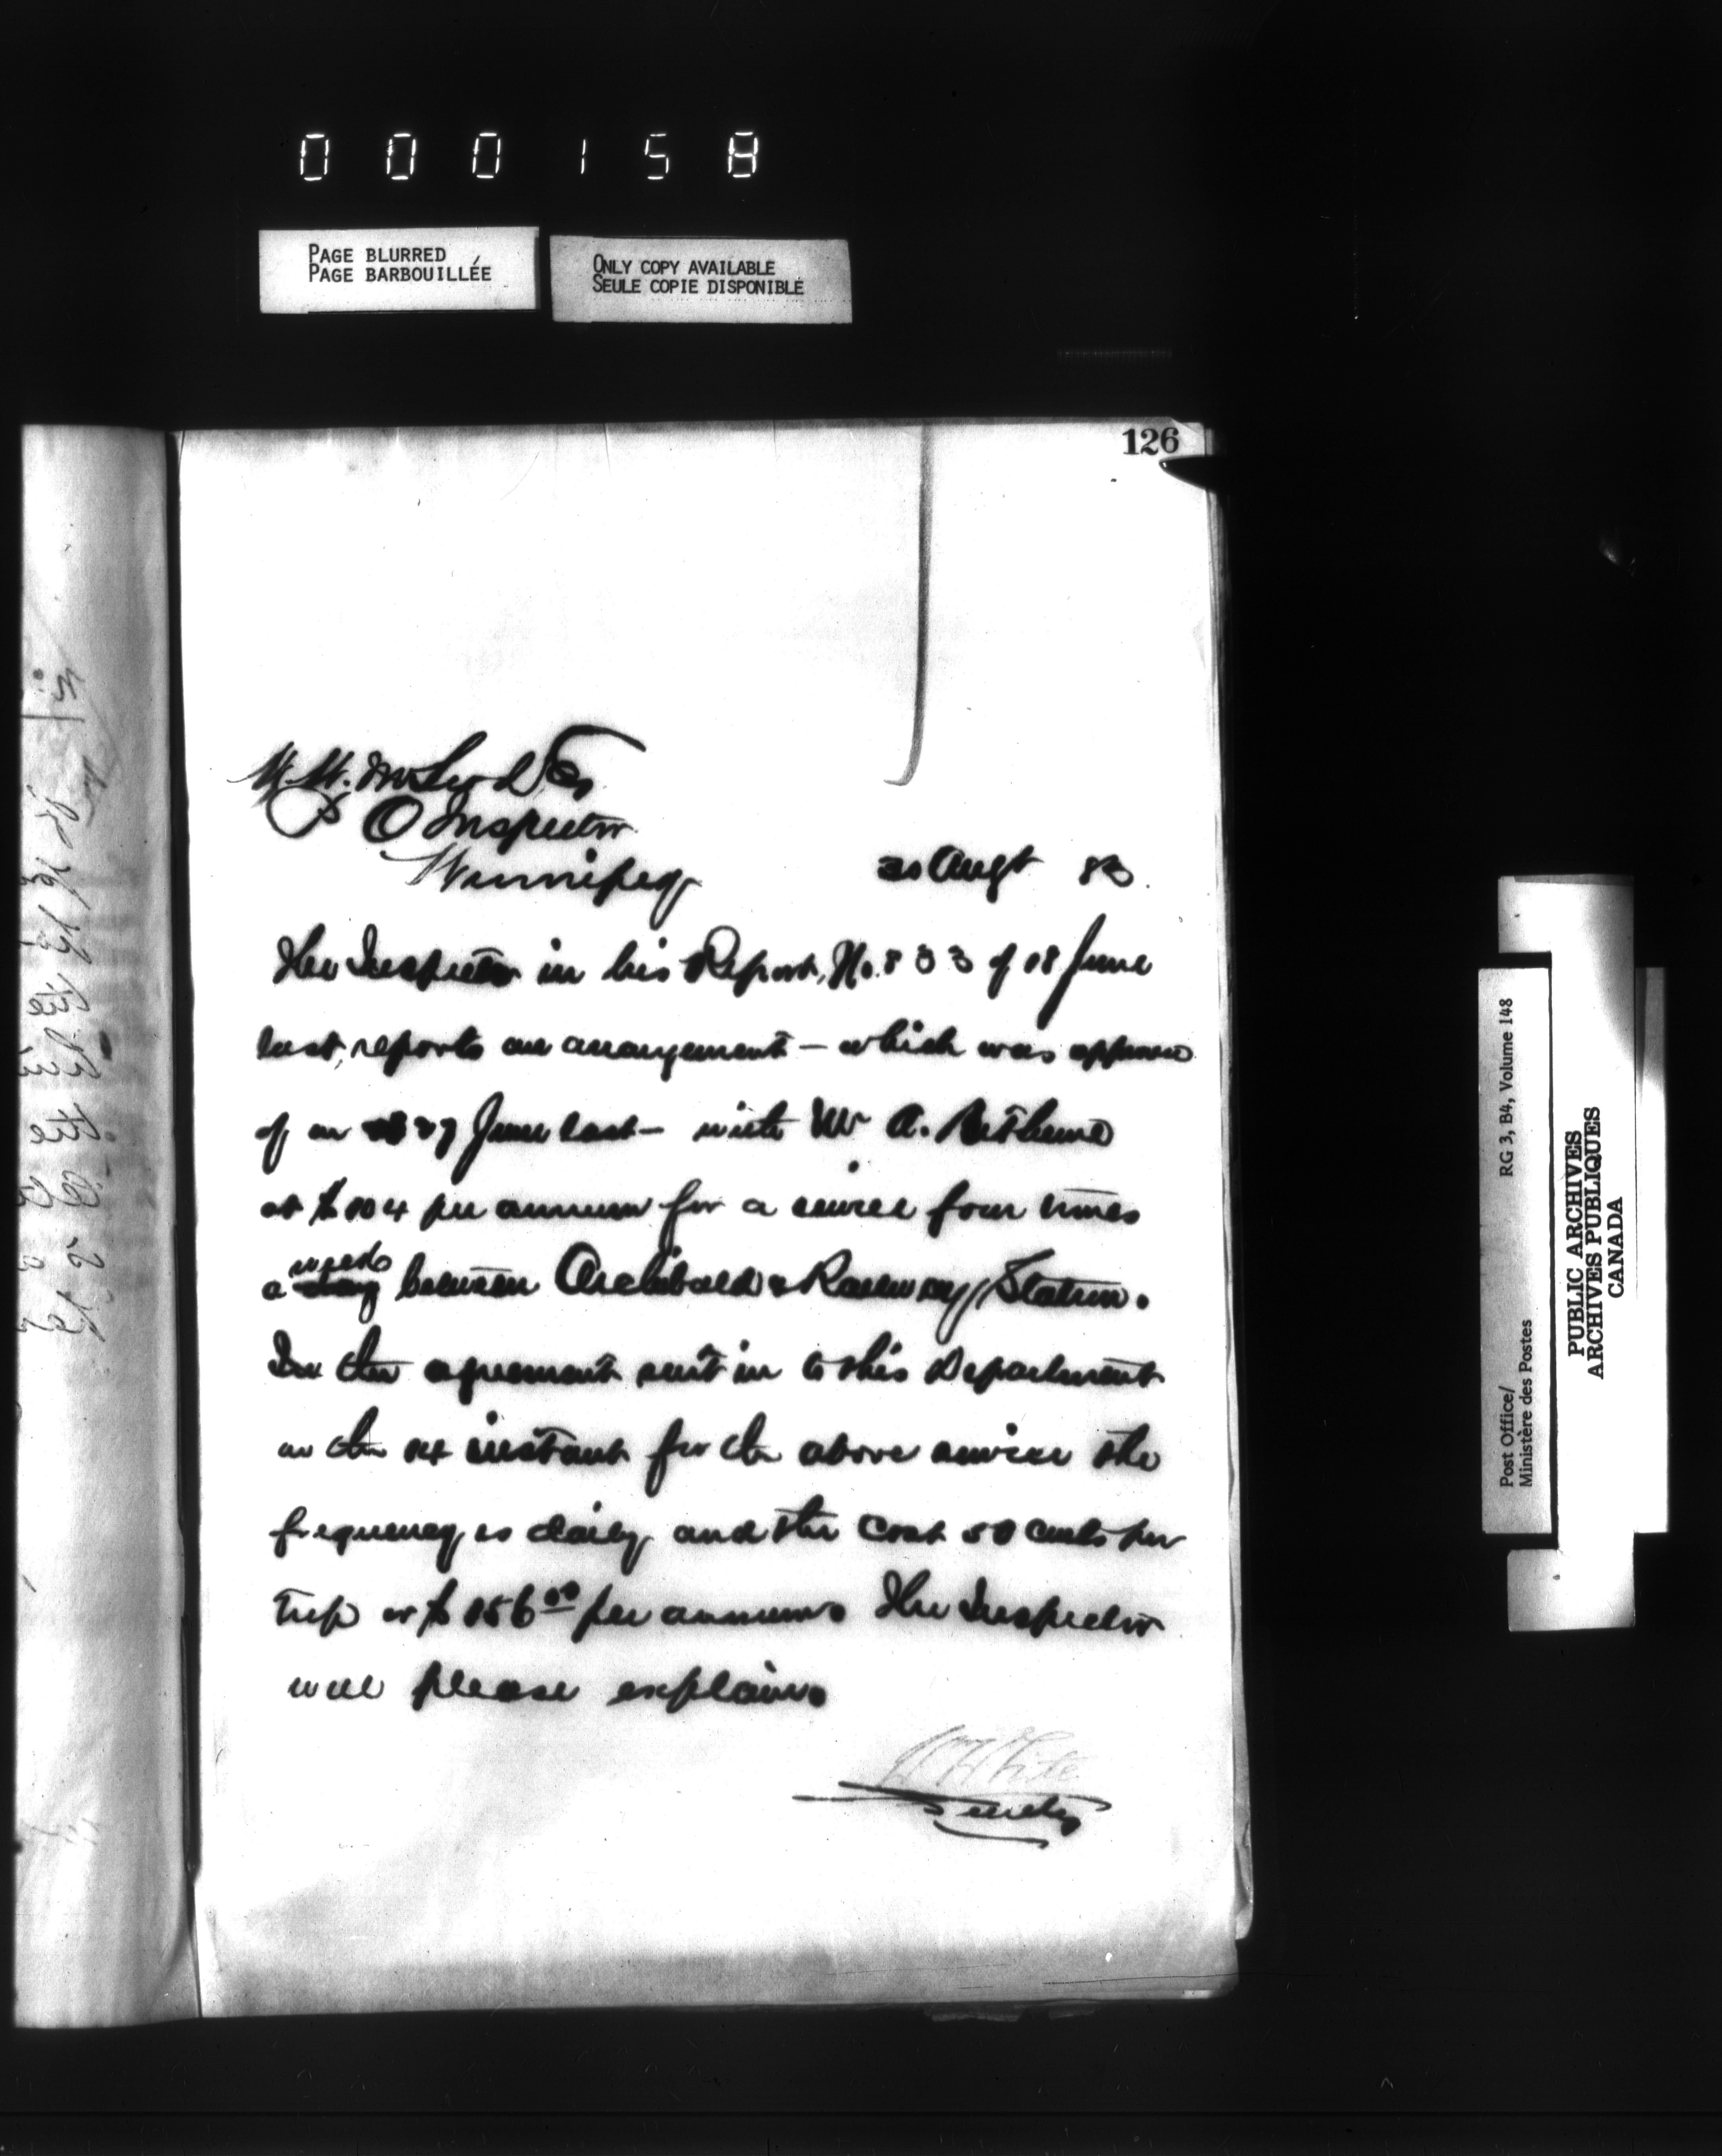 000158
PAGE BLURRED
PAGE BARBOUILLÉE
ONLY COPY AVAILABLE
SEULE COPIE DISPONIBLE
126
W. W. McLeod Esq
P O Inspector
Winnipeg
30 Augt 83.
The Inspector in his Report, No. 833 of 18 June
last, reports an arrangement – which was approved
of on 27 June last – with Mr A. Bethune
at $104 per annum for a service four times
a week between Archibald & Railway Station.
In the agreement sent in to this Department
on the 14 instant for the above service the
frequency is daily and the cost 50 cents per
trip or $156.00 per annum. The Inspector
will please explain.
W White
Secretary
Post Office/
Ministère des Postes
RG 3, B4, Volume 148
PUBLIC ARCHIVES
ARCHIVES PUBLIQUES
CANADA